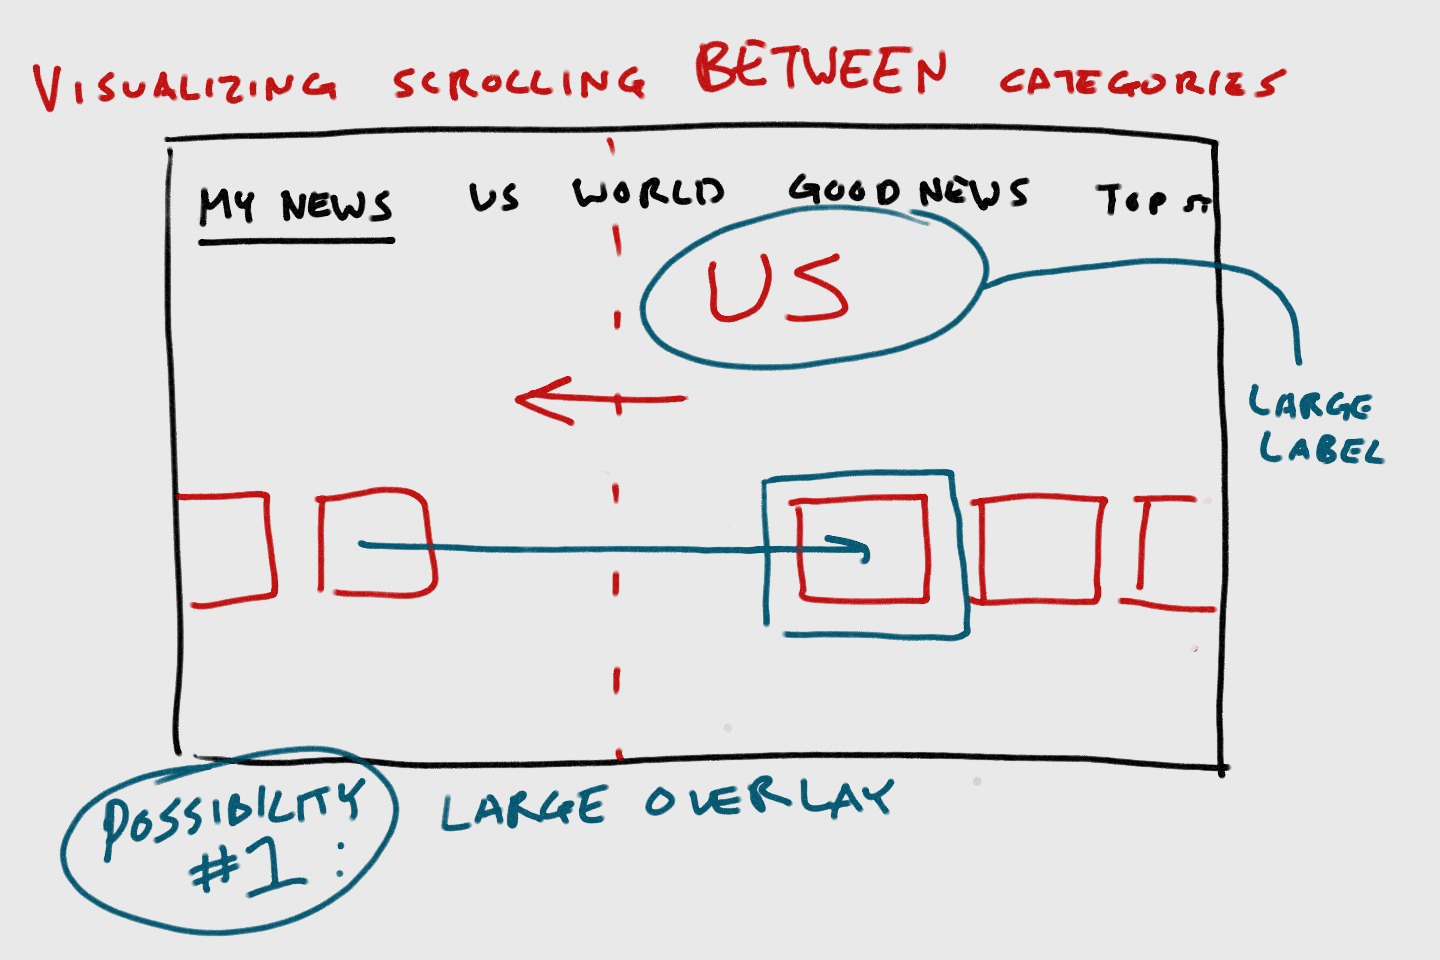 VISUALIZING SCROLLING BETWEEN CATEGORIES
MY NEWS US WORLD GOOD NEWS TOP ST
US
LARGE
LABEL
POSSIBILITY
#1:
LARGE OVERLAY